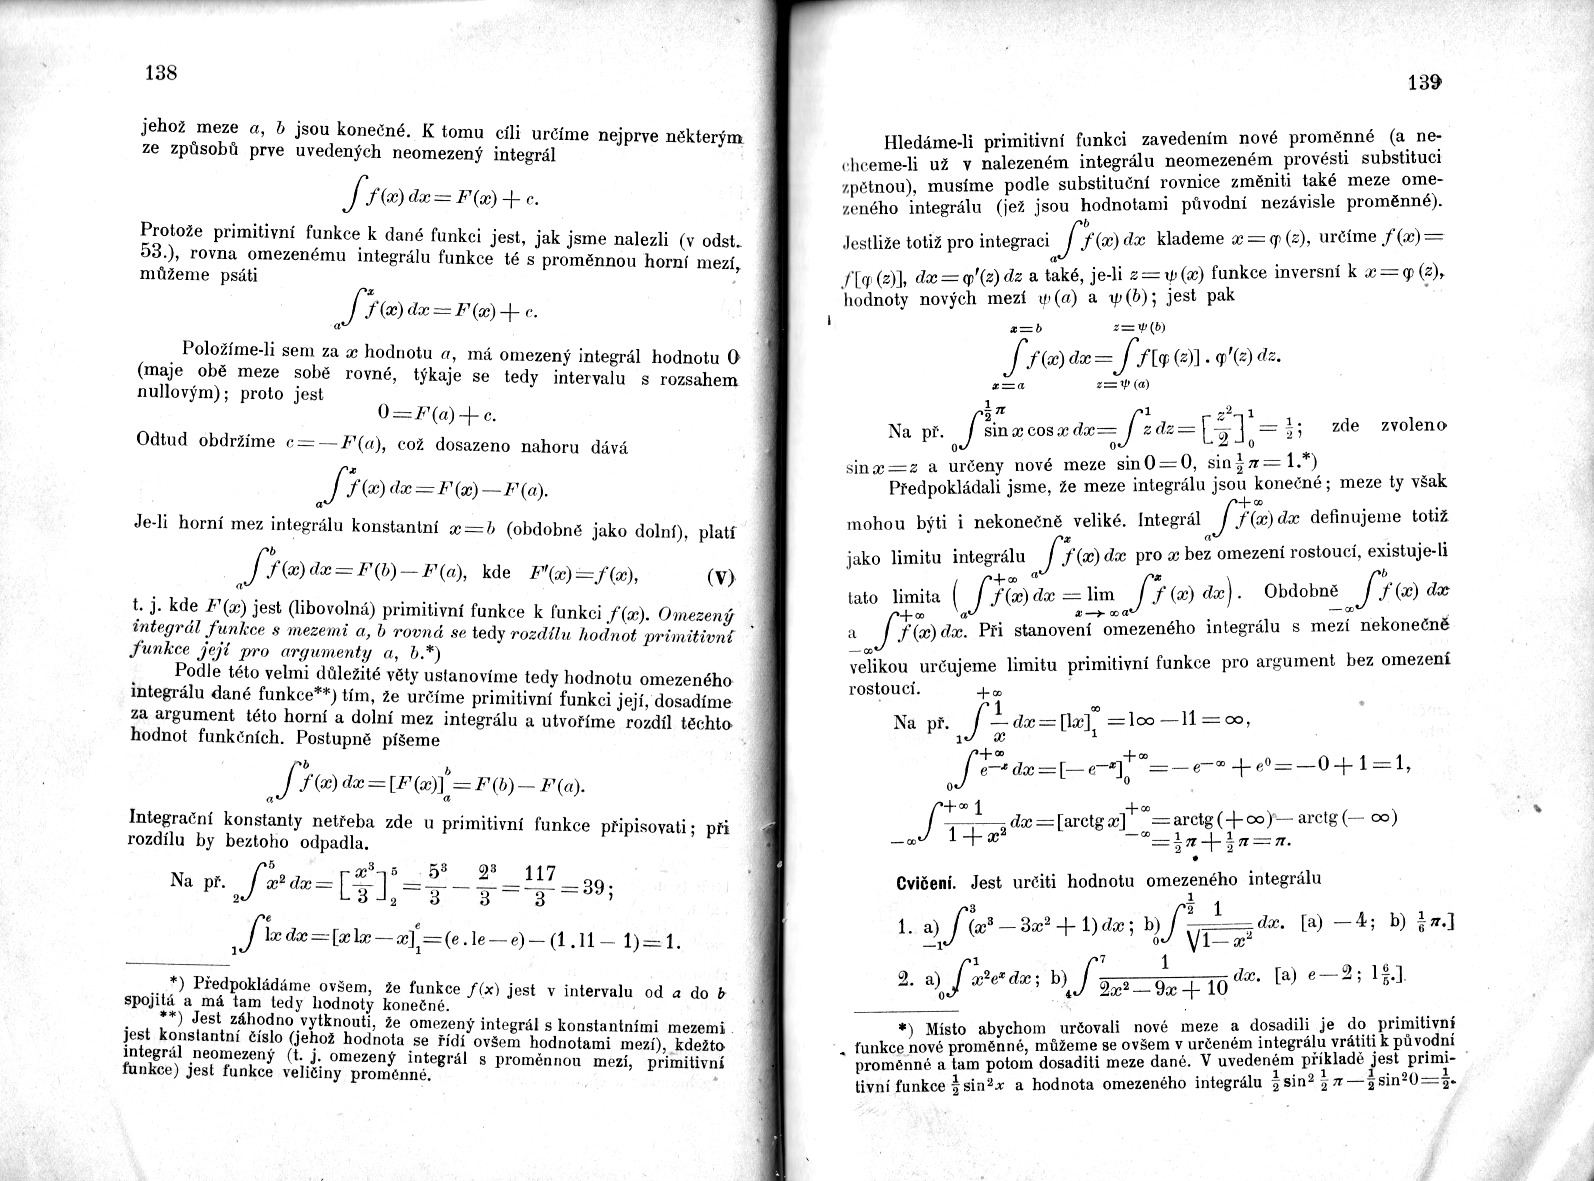 138
jehož meze a, b jsou konečné. K tomu cíli určíme nejprve některým
ze způsobů prve uvedených neomezený integrál
∫ f(x) dx = F(x) + c.
Protože primitivní funkce k dané funkci jest, jak jsme nalezli (v odst.
53.), rovna omezenému integrálu funkce té s proměnnou horní mezí,
můžeme psáti
ₐ∫ˣ f(x) dx = F(x) + c.
Položíme-li sem za x hodnotu a, má omezený integrál hodnotu 0
(maje obě meze sobě rovné, týkaje se tedy intervalu s rozsahem
nullovým); proto jest
0 = F(a) + c.
Odtud obdržíme c = — F(a), což dosazeno nahoru dává
ₐ∫ˣ f(x) dx = F(x) — F(a).
Je-li horní mez integrálu konstantní x = b (obdobně jako dolní), platí
ₐ∫ᵇ f(x) dx = F(b) — F(a), kde F'(x) = f(x), (V)
t. j. kde F(x) jest (libovolná) primitivní funkce k funkci f(x). Omezený
integrál funkce s mezemi a, b rovná se tedy rozdílu hodnot primitivní
funkce její pro argumenty a, b.*)
Podle této velmi důležité věty ustanovíme tedy hodnotu omezeného
integrálu dané funkce**) tím, že určíme primitivní funkci její, dosadíme
za argument této horní a dolní mez integrálu a utvoříme rozdíl těchto
hodnot funkčních. Postupně píšeme
ₐ∫ᵇ f(x) dx = [F(x)]ₐᵇ = F(b) — F(a).
Integrační konstanty netřeba zde u primitivní funkce připisovati; při
rozdílu by beztoho odpadla.
Na př. ₂∫⁵ x² dx = [x³/3]₂⁵ = 5³/3 — 2³/3 = 117/3 = 39;
₁∫ᵉ lx dx = [x lx — x]₁ᵉ = (e . le — e) — (1 . l1 — 1) = 1.
*) Předpokládáme ovšem, že funkce f(x) jest v intervalu od a do b
spojitá a má tam tedy hodnoty konečné.
**) Jest záhodno vytknouti, že omezený integrál s konstantními mezemi
jest konstantní číslo (jehož hodnota se řídí ovšem hodnotami mezí), kdežto
integrál neomezený (t. j. omezený integrál s proměnnou mezí, primitivní
funkce) jest funkce veličiny proměnné.
139
Hledáme-li primitivní funkci zavedením nové proměnné (a ne-
chceme-li už v nalezeném integrálu neomezeném provésti substituci
zpětnou), musíme podle substituční rovnice změniti také meze ome-
zeného integrálu (jež jsou hodnotami původní nezávisle proměnné).
Jestliže totiž pro integraci ₐ∫ᵇ f(x) dx klademe x = φ (z), určíme f(x) =
f[φ (z)], dx = φ'(z) dz a také, je-li z = ψ (x) funkce inversní k x = φ (z),
hodnoty nových mezí ψ (a) a ψ (b); jest pak
x = b z = ψ (b)
∫ f(x) dx = ∫ f[φ (z)] . φ'(z) dz.
x = a z = ψ (a)
Na př. ₀∫^{½π} sin x cos x dx = ₀∫¹ z dz = [z²/2]₀¹ = ½; zde zvoleno
sin x = z a určeny nové meze sin 0 = 0, sin ½ π = 1.*)
Předpokládali jsme, že meze integrálu jsou konečné; meze ty však
mohou býti i nekonečně veliké. Integrál ₐ∫^{+∞} f(x) dx definujeme totiž
jako limitu integrálu ₐ∫ˣ f(x) dx pro x bez omezení rostoucí, existuje-li
tato limita (ₐ∫^{+∞} f(x) dx = lim_{x→∞} ₐ∫ˣ f (x) dx). Obdobně ₋∞∫ᵇ f (x) dx
a ₋∞∫^{+∞} f(x) dx. Při stanovení omezeného integrálu s mezí nekonečně
velikou určujeme limitu primitivní funkce pro argument bez omezení
rostoucí.
Na př. ₁∫^{+∞} 1/x dx = [lx]₁^∞ = l∞ — l1 = ∞,
₀∫^{+∞} e^{—x} dx = [— e^{—x}]₀^{+∞} = — e^{—∞} + e⁰ = — 0 + 1 = 1,
₋∞∫^{+∞} 1/(1 + x²) dx = [arctg x]₋∞^{+∞} = arctg (+ ∞) — arctg (— ∞)
= ½ π + ½ π = π.
Cvičení. Jest určiti hodnotu omezeného integrálu
1. a) ₋₁∫³ (x³ — 3x² + 1) dx; b) ₀∫^{½} 1/√(1 — x²) dx. [a) — 4; b) ⅙ π.]
2. a) ₀∫¹ x²eˣ dx; b) ₄∫⁷ 1/(2x² — 9x + 10) dx. [a) e — 2; l 6/5.]
*) Místo abychom určovali nové meze a dosadili je do primitivní
funkce nové proměnné, můžeme se ovšem v určeném integrálu vrátiti k původní
proměnné a tam potom dosaditi meze dané. V uvedeném příkladě jest primi-
tivní funkce ½ sin² x a hodnota omezeného integrálu ½ sin² ½ π — ½ sin² 0 = ½.